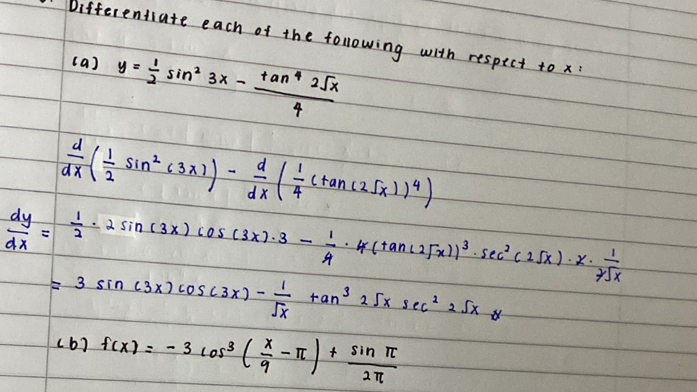 Differentiate each of the following with respect to x :
(a) y = 1/2 sin² 3x − tan⁴ 2√x / 4
d/dx (1/2 sin² (3x)) − d/dx (1/4 (tan(2√x))⁴)
dy/dx = 1/2 · 2 sin (3x) cos (3x) · 3 − 1/4 · 4 (tan(2√x))³ · sec² (2√x) · 2 · 1/2√x
= 3 sin (3x) cos (3x) − 1/√x tan³ 2√x sec² 2√x
(b) f(x) = −3 cos³ (x/9 − π) + sin π / 2π